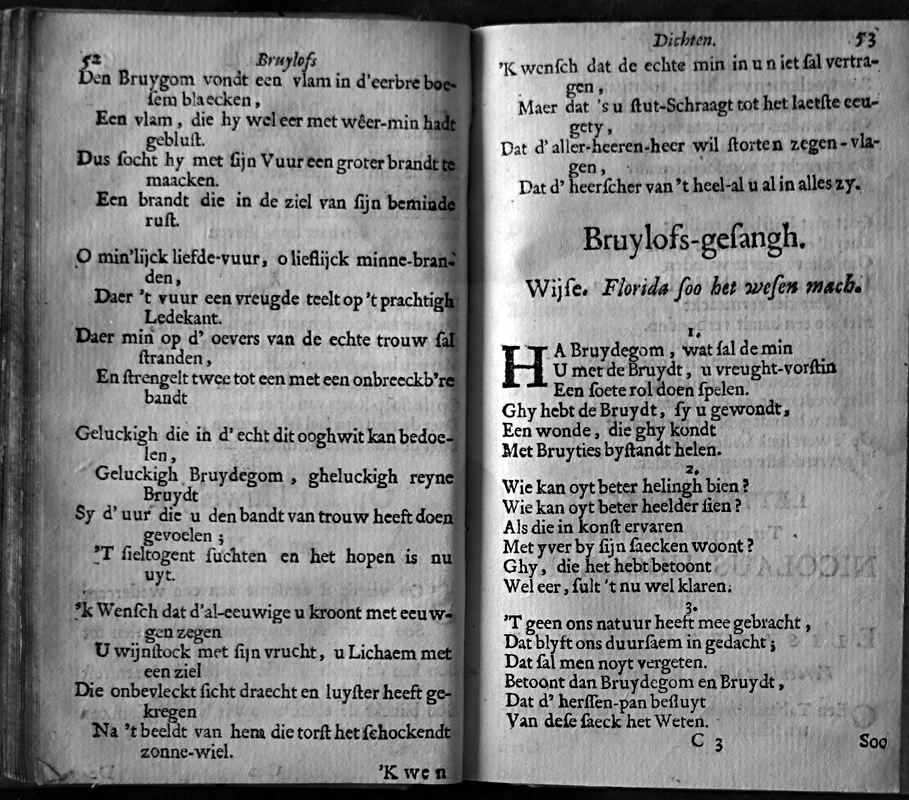 52
Bruylofs
Den Bruygom vondt een vlam in d'eerbre boe-
ſem blaecken,
Een vlam, die hy wel eer met wêer-min hadt
gebluſt.
Dus ſocht hy met ſijn Vuur een groter brandt te
maacken.
Een brandt die in de ziel van ſijn beminde
ruſt.
O min'lijck liefde-vuur, o lieflijck minne-bran-
den,
Daer 't vuur een vreugde teelt op 't prachtigh
Ledekant.
Daer min op d' oevers van de echte trouw ſal
ſtranden,
En ſtrengelt twee tot een met een onbreeckb're
bandt
Geluckigh die in d' echt dit ooghwit kan bedoe-
len,
Geluckigh Bruydegom, gheluckigh reyne
Bruydt
Sy d' uur die u den bandt van trouw heeft doen
gevoelen;
'T ſieltogent ſuchten en het hopen is nu
uyt.
'k Wenſch dat d'al-eeuwige u kroont met eeuw-
gen zegen
U wijnſtock met ſijn vrucht, u Lichaem met
een ziel
Die onbevleckt ſicht draecht en luyſter heeft ge-
kregen
Na 't beeldt van hem die torſt het ſchockendt
zonne-wiel.
'K wen
Dichten.
53
'K wenſch dat de echte min in u niet ſal vertra-
gen,
Maer dat 's u ſtut-Schraagt tot het laetſte eeu-
gety,
Dat d' aller-heeren-heer wil ſtorten zegen-vla-
gen,
Dat d' heerſcher van 't heel-al u al in alles zy.
Bruylofs-geſangh.
Wijſe. Florida ſoo het weſen mach.
1.
HA Bruydegom, wat ſal de min
U met de Bruydt, u vreught-vorſtin
Een ſoete rol doen ſpelen.
Ghy hebt de Bruydt, ſy u gewondt,
Een wonde, die ghy kondt
Met Bruyties byſtandt helen.
2.
Wie kan oyt beter helingh bien?
Wie kan oyt beter heelder ſien?
Als die in konſt ervaren
Met yver by ſijn ſaecken woont?
Ghy, die het hebt betoont
Wel eer, ſult 't nu wel klaren.
3.
'T geen ons natuur heeft mee gebracht,
Dat blyft ons duurſaem in gedacht;
Dat ſal men noyt vergeten.
Betoont dan Bruydegom en Bruydt,
Dat d' herſſen-pan beſluyt
Van deſe ſaeck het Weten.
C 3
Soo